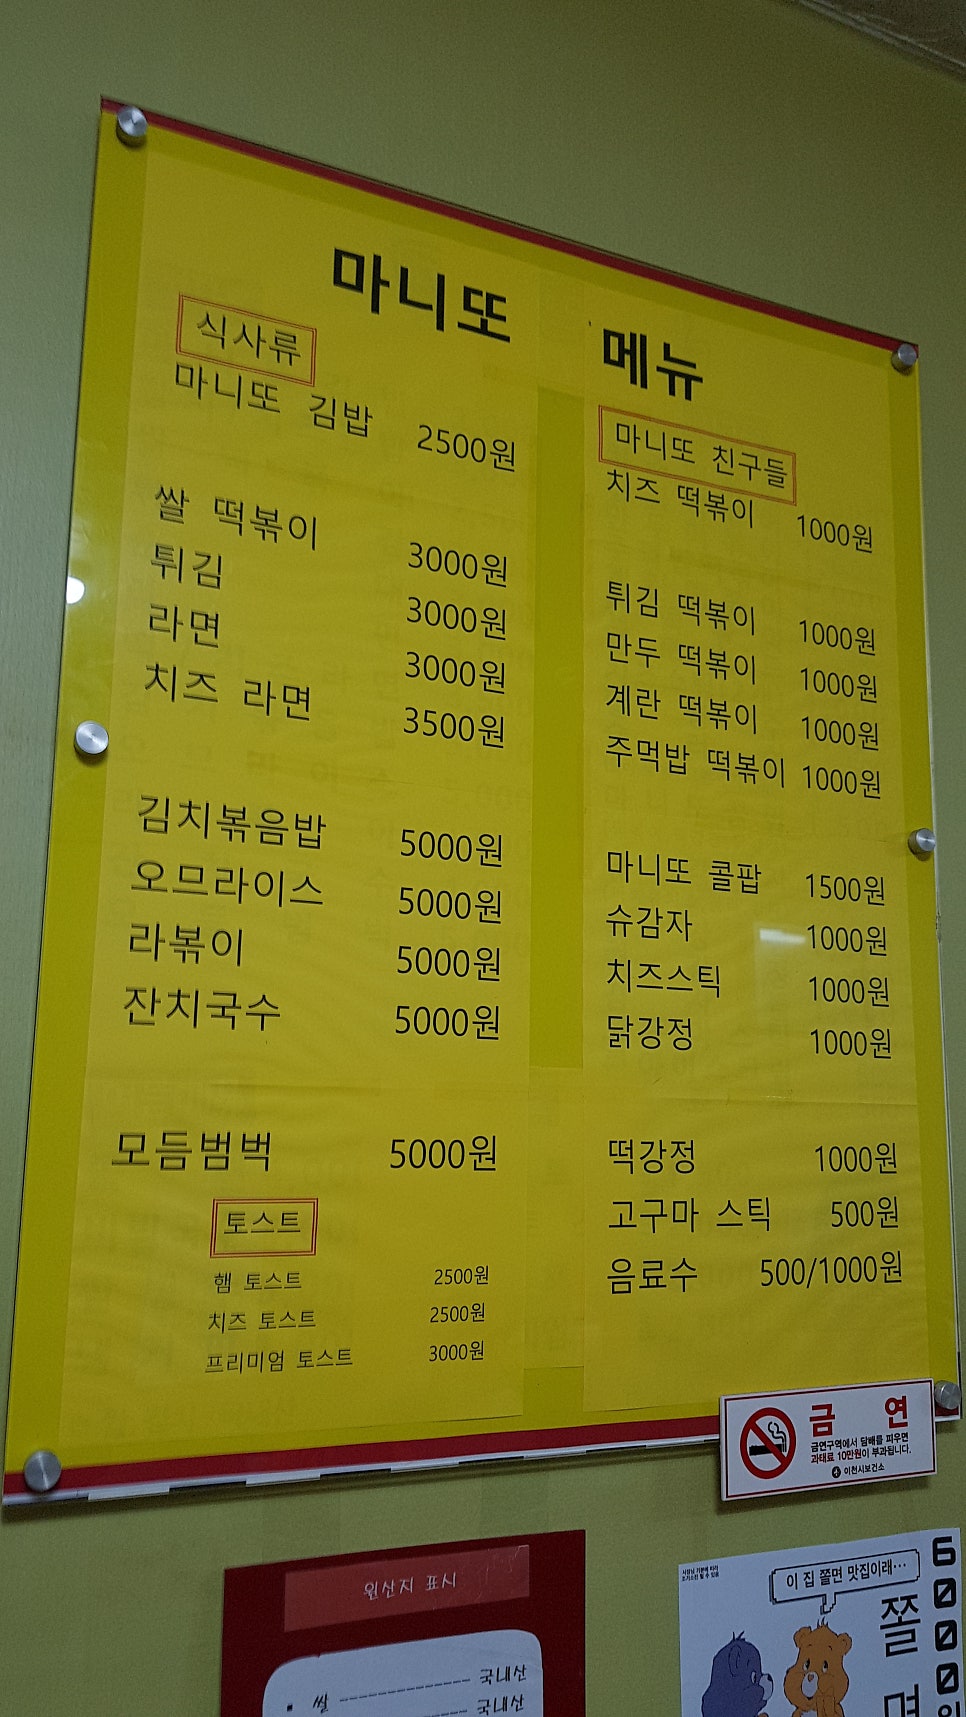 마니또 메뉴
식사류
마니또 김밥 2500원
쌀 떡볶이 3000원
튀김 3000원
라면 3000원
치즈 라면 3500원
김치볶음밥 5000원
오므라이스 5000원
라볶이 5000원
잔치국수 5000원
모듬범벅 5000원
토스트
햄 토스트 2500원
치즈 토스트 2500원
프리미엄 토스트 3000원
마니또 친구들
치즈 떡볶이 1000원
튀김 떡볶이 1000원
만두 떡볶이 1000원
계란 떡볶이 1000원
주먹밥 떡볶이 1000원
마니또 콜팝 1500원
슈감자 1000원
치즈스틱 1000원
닭강정 1000원
떡강정 1000원
고구마 스틱 500원
음료수 500/1000원
금 연
금연구역에서 담배를 피우면
과태료 10만원이 부과됩니다.
이천시보건소
원산지 표시
쌀 국내산
국내산
이 집 쫄면 맛집이래…
쫄면
6000원